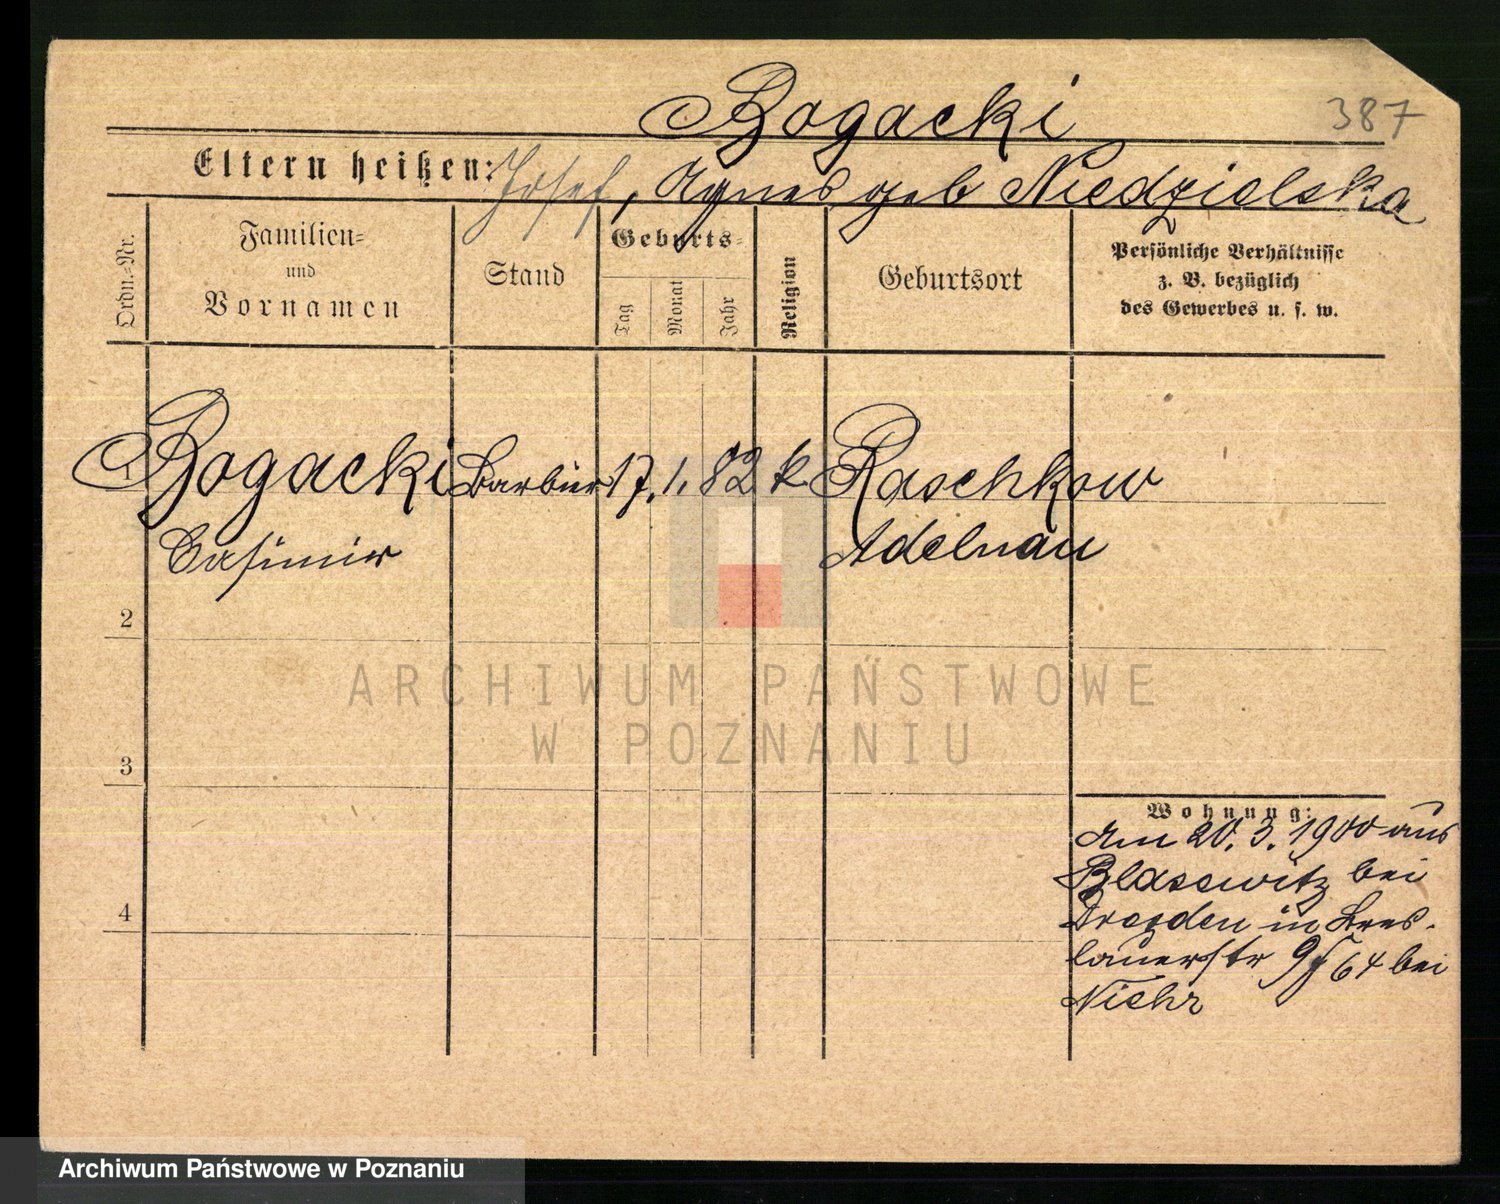 Bogacki
387
Eltern heißen: Josef, Agnes geb Niedzielska
Ordn.-Nr.
Familien-
und
Vornamen
Stand
Geburts-
Tag
Monat
Jahr
Religion
Geburtsort
Persönliche Verhältnisse
z. B. bezüglich
des Gewerbes u. s. w.
1
Bogacki Barbier 17. 1. 82 k Raschkow
Casimir Adelnau
2
ARCHIWUM PAŃSTWOWE
W POZNANIU
3
Wohnung:
Am 20. 3. 1900 aus
Blasewitz bei
Dresden in Bres-
lauerstr 9 64 bei
Niehr
4
Archiwum Państwowe w Poznaniu